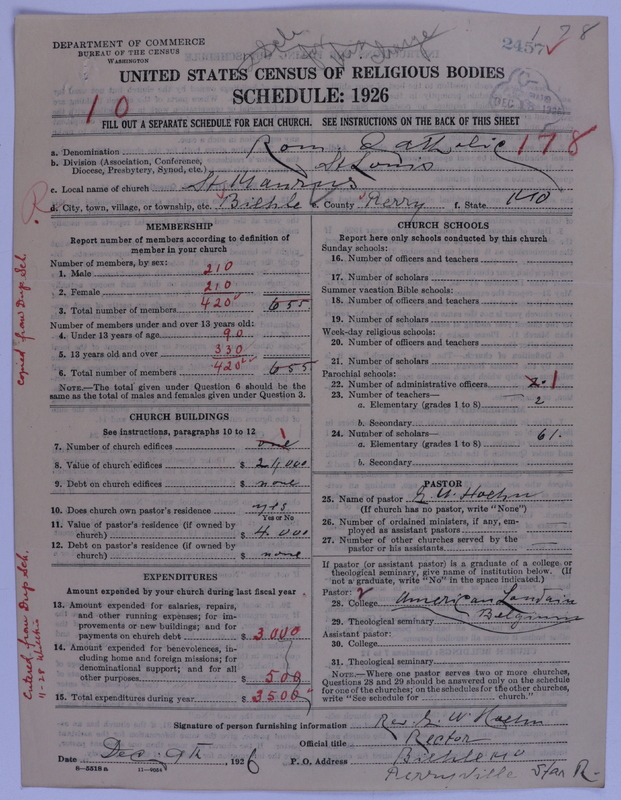 DEPARTMENT OF COMMERCE
BUREAU OF THE CENSUS
WASHINGTON
2457
178
UNITED STATES CENSUS OF RELIGIOUS BODIES
SCHEDULE: 1926
10
FILL OUT A SEPARATE SCHEDULE FOR EACH CHURCH. SEE INSTRUCTIONS ON THE BACK OF THIS SHEET
a. Denomination Rom. Catholic 178
b. Division (Association, Conference, Diocese, Presbytery, Synod, etc.) St Louis
c. Local name of church St Maurus
d. City, town, village, or township, etc. Biehle e. County Perry f. State MO
R.
copied from Dup Sch.
MEMBERSHIP
Report number of members according to definition of
member in your church
Number of members, by sex:
1. Male 210
2. Female 210
3. Total number of members 420 655
Number of members under and over 13 years old:
4. Under 13 years of age 90
5. 13 years old and over 330
6. Total number of members 420 655
NOTE.—The total given under Question 6 should be the
same as the total of males and females given under Question 3.
CHURCH BUILDINGS
See instructions, paragraphs 10 to 12
7. Number of church edifices one 1
8. Value of church edifices $ 24000
9. Debt on church edifices $ none
10. Does church own pastor's residence yes
Yes or No
11. Value of pastor's residence (if owned by
church) $ 4.000
12. Debt on pastor's residence (if owned by
church) $ none
Entered from Dup Sch.
11-28
EXPENDITURES
Amount expended by your church during last fiscal year
13. Amount expended for salaries, repairs,
and other running expenses; for im-
provements or new buildings; and for
payments on church debt $ 3000
14. Amount expended for benevolences, in-
cluding home and foreign missions; for
denominational support; and for all
other purposes $ 500
15. Total expenditures during year $ 3500
CHURCH SCHOOLS
Report here only schools conducted by this church
Sunday schools:
16. Number of officers and teachers
17. Number of scholars
Summer vacation Bible schools:
18. Number of officers and teachers
19. Number of scholars
Week-day religious schools:
20. Number of officers and teachers
21. Number of scholars
Parochial schools:
22. Number of administrative officers 2. 1
23. Number of teachers—
a. Elementary (grades 1 to 8) 2
b. Secondary
24. Number of scholars—
a. Elementary (grades 1 to 8) 61.
b. Secondary
PASTOR
25. Name of pastor G. W. Hoehn
(If church has no pastor, write "None")
26. Number of ordained ministers, if any, em-
ployed as assistant pastors
27. Number of other churches served by the
pastor or his assistants
If pastor (or assistant pastor) is a graduate of a college or
theological seminary, give name of institution below. (If
not a graduate, write "No" in the space indicated.)
Pastor:
28. College American Louvain
29. Theological seminary Belgium
Assistant pastor:
30. College
31. Theological seminary
NOTE.—Where one pastor serves two or more churches,
Questions 28 and 29 should be answered only on the schedule
for one of the churches; on the schedules for the other churches,
write "See schedule for church."
Signature of person furnishing information Rev. G. W Hoehn
Official title Rector
Date Dec. 9th, 1926 P. O. Address Biehle MO
8—5518 a 11—9054
Perryville Star R-